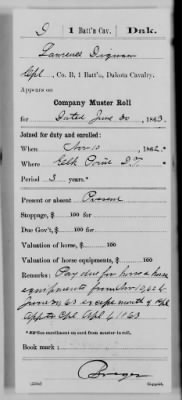 D 1 Batt'n Cav. Dak.
Lawrence Dignan
Cpl., Co. B, 1 Batt'n, Dakota Cavalry.
Appears on
Company Muster Roll
for Dated June 30, 1863.
Joined for duty and enrolled:
When Nov 10, 1862.*
Where Elk Point D.T.
Period 3 years.*
Present or absent Present
Stoppage, $ 100 for
Due Gov't, $ 100 for
Valuation of horse, $ 100
Valuation of horse equipments, $ 100
Remarks: Pay due for horse & horse
equipments from Nov 10, 62 to
June 30, 63 except month of
Appt Cpl. Apl 1, 1863
*See enrollment on card from muster-in roll.
Book mark:
Copyist.